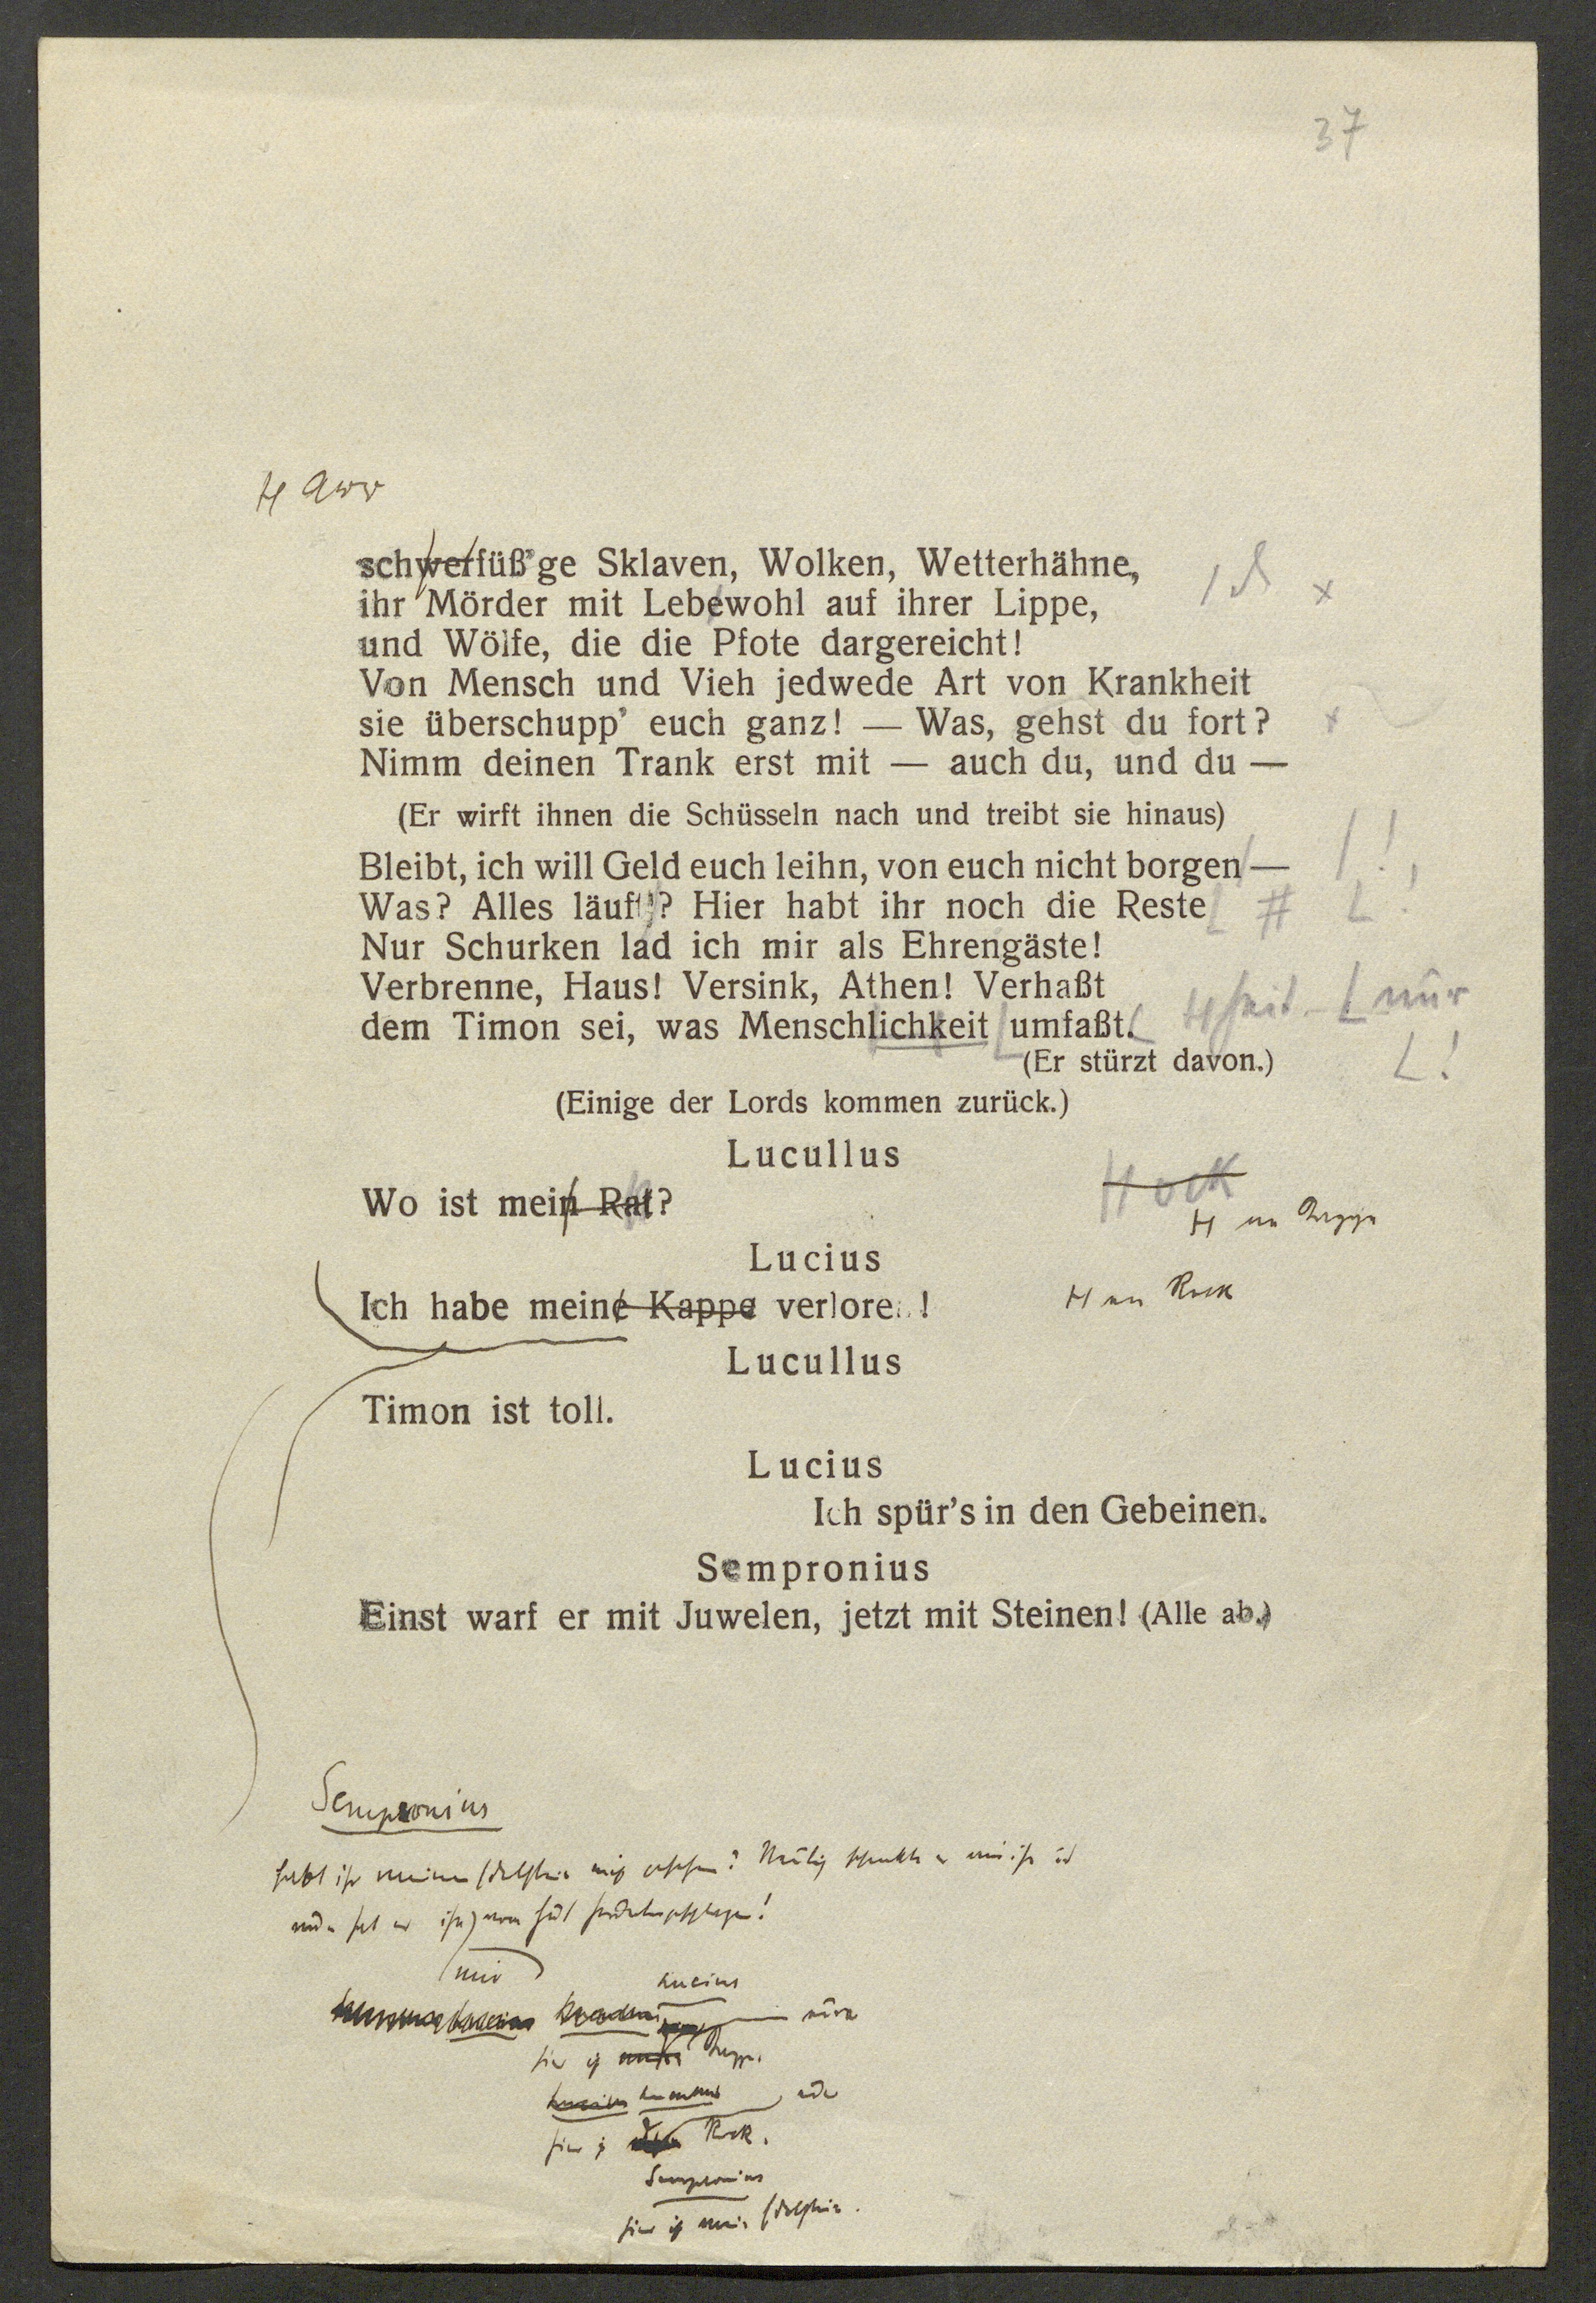 37
schwerfüß'ge Sklaven, Wolken, Wetterhähne,
ihr Mörder mit Lebewohl auf ihrer Lippe,
und Wölfe, die die Pfote dargereicht!
Von Mensch und Vieh jedwede Art von Krankheit
sie überschupp' euch ganz! — Was, gehst du fort?
Nimm deinen Trank erst mit — auch du, und du —
(Er wirft ihnen die Schüsseln nach und treibt sie hinaus)
Bleibt, ich will Geld euch leihn, von euch nicht borgen — !
Was? Alles läuft? Hier habt ihr noch die Reste # !
Nur Schurken lad ich mir als Ehrengäste!
Verbrenne, Haus! Versink, Athen! Verhaßt
dem Timon sei, was Menschlichkeit umfaßt. heit nur
(Er stürzt davon.) !
(Einige der Lords kommen zurück.)
Lucullus
Wo ist mein Rat? ock
Lucius
Ich habe meine Kappe verloren! Rock
Lucullus
Timon ist toll.
Lucius
Ich spür's in den Gebeinen.
Sempronius
Einst warf er mit Juwelen, jetzt mit Steinen! (Alle ab.)
Sempronius
habt ihr meinen Edelstein nicht gesehen?
mir
Lucius
hier ist
hier ist Rock.
Sempronius
hier ist mein Edelstein.